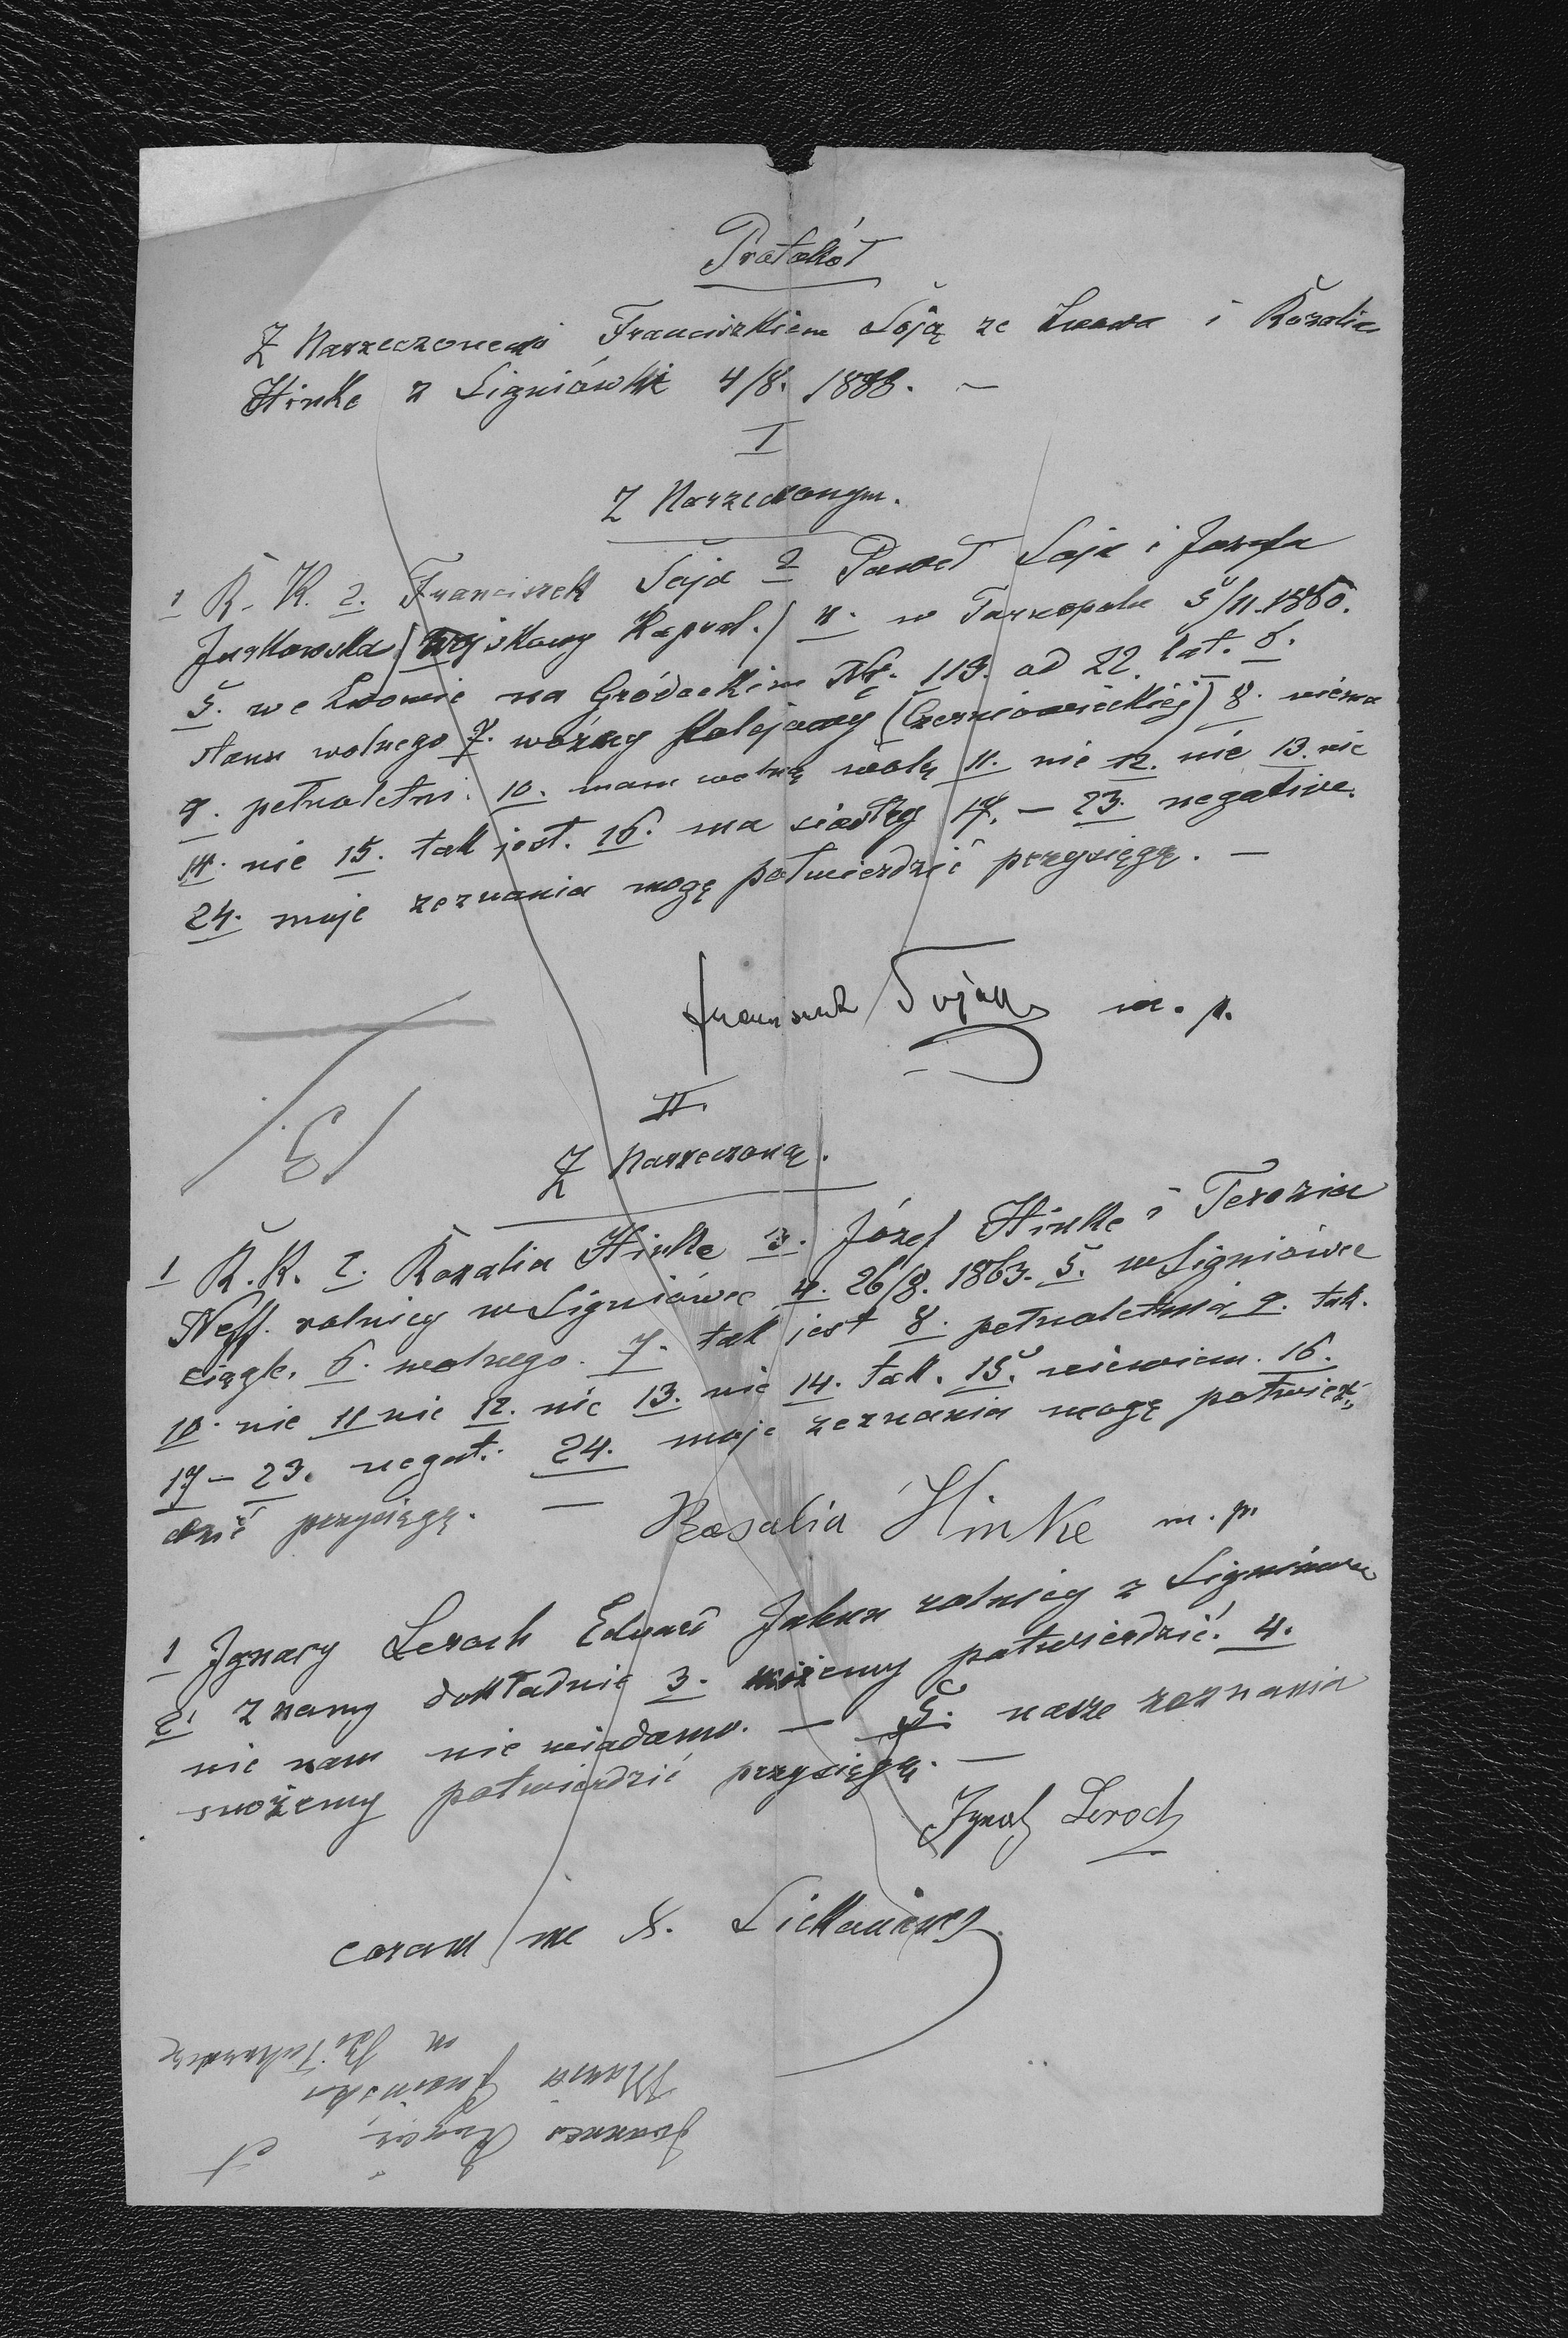 Protokół
Z Narzeczonemi Franciszkiem Soją ze Lwowa i Rozalią
Hinke z Signiówki 4/8. 1888. —
I
Z Narzeczonym.
1 R. K. 2. Franciszek Soja 3 Paweł Soja i Józefa
Jurkowska (wojskowy kapral.) 4. w Tarnopolu 5/11 1860.
5. we Lwowie na Gródeckim Nr. 113. od 22. lat. 6.
stanu wolnego 7. woźny kolejowy (Czerniowieckiej) 8. niema
9. pełnoletni. 10. mam wolną wolę 11. nie 12. nie 13. nie
14. nie 15. tak jest. 16. ma siostry 17. — 23. negative.
24. moje zeznania mogę potwierdzić przysięgą. —
Franciszek Soja m. p.
II.
Z Narzeczoną.
1 R. K. 2. Rozalia Hinke 3. Józef Hinke i Terezia
Neff. rolnicy w Signiówce 4. 26/8. 1863. 5. w Signiówce
ciągle. 6. wolnego. 7. tak jest 8. pełnoletnia 9. tak.
10. nie 11 nie 12. nie 13. nie 14. tak. 15. niewiem. 16.
17 — 23. negat. 24. moje zeznania mogę potwier„
dzić przysięgą. — Rosalia Hinke m. p.
1 Ignacy Leroch Eduard Jakun rolnicy z Signiówki
2. znamy dokładnie 3. możemy potwierdzić. 4.
nic nam nie wiadomo. — 5. nasze zeznania
możemy potwierdzić przysięgą. —
Ignatz Leroch
coram me X.
et
Maria